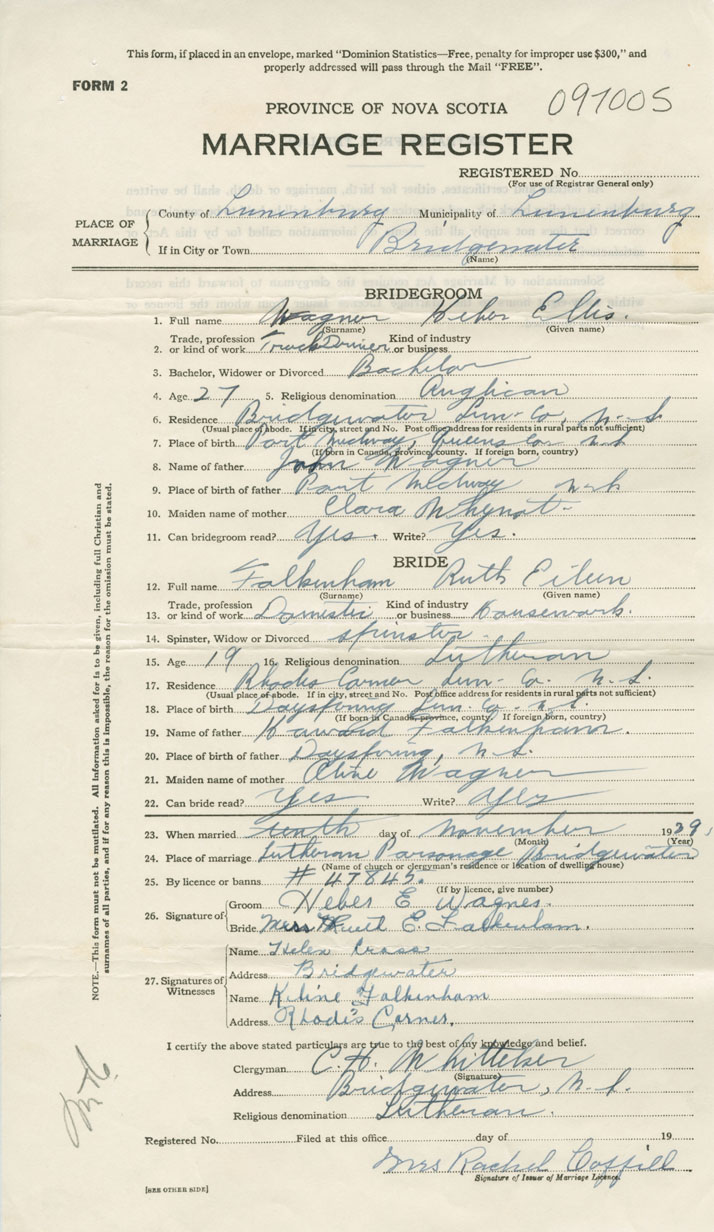 This form, if placed in an envelope, marked "Dominion Statistics—Free, penalty for improper use $300," and
properly addressed will pass through the Mail "FREE".
FORM 2
PROVINCE OF NOVA SCOTIA 097005
MARRIAGE REGISTER
REGISTERED No.
(For use of Registrar General only)
PLACE OF MARRIAGE
County of Lunenburg Municipality of Lunenburg
If in City or Town Bridgewater
(Name)
BRIDEGROOM
1. Full name Wagner Heber Ellis.
(Surname) (Given name)
Trade, profession Kind of industry
2. or kind of work Truck Driver or business
3. Bachelor, Widower or Divorced Bachelor
4. Age 27 5. Religious denomination Anglican
6. Residence Bridgewater Lun. Co, N.S.
(Usual place of abode. If in city, street and No. Post office address for residents in rural parts not sufficient)
7. Place of birth Port Medway, Queens Co N.S
(If born in Canada, province, county. If foreign born, country)
8. Name of father John Wagner
9. Place of birth of father Port Medway N.S.
10. Maiden name of mother Clara
11. Can bridegroom read? Yes. Write? Yes.
BRIDE
12. Full name Falkenham Ruth Eileen
(Surname) (Given name)
Trade, profession Kind of industry
13. or kind of work Domestic or business Housework.
14. Spinster, Widow or Divorced Spinster
15. Age 19 16. Religious denomination Lutheran
17. Residence Rhodes Corner Lun. Co. N.S.
(Usual place of abode. If in city, street and No. Post office address for residents in rural parts not sufficient)
18. Place of birth Dayspring Lun. Co. N.S.
(If born in Canada, province, county. If foreign born, country)
19. Name of father Falkenham.
20. Place of birth of father Dayspring, N.S.
21. Maiden name of mother Wagner
22. Can bride read? Yes Write? Yes
23. When married tenth day of November 1939.
(Month) (Year)
24. Place of marriage Lutheran Parsonage Bridgewater
(Name of church or clergyman's residence or location of dwelling house)
25. By licence or banns # 47845.
(If by licence, give number)
26. Signature of
Groom Heber E Wagner.
Bride Miss Ruth E. Falkenham.
27. Signatures of Witnesses
Name Helen Cross
Address Bridgewater
Name Falkenham
Address Rhode's Corner.
I certify the above stated particulars are true to the best of my knowledge and belief.
Clergyman C. H. Whitteker
(Signature)
Address Bridgewater, N.S.
Religious denomination Lutheran.
Registered No. Filed at this office day of 19
Mrs Rachel Coffill
Signature of Issuer of Marriage Licence.
[SEE OTHER SIDE]
NOTE.—This form must not be mutilated. All information asked for is to be given, including full Christian and
surnames of all parties, and if for any reason this is impossible, the reason for the omission must be stated.